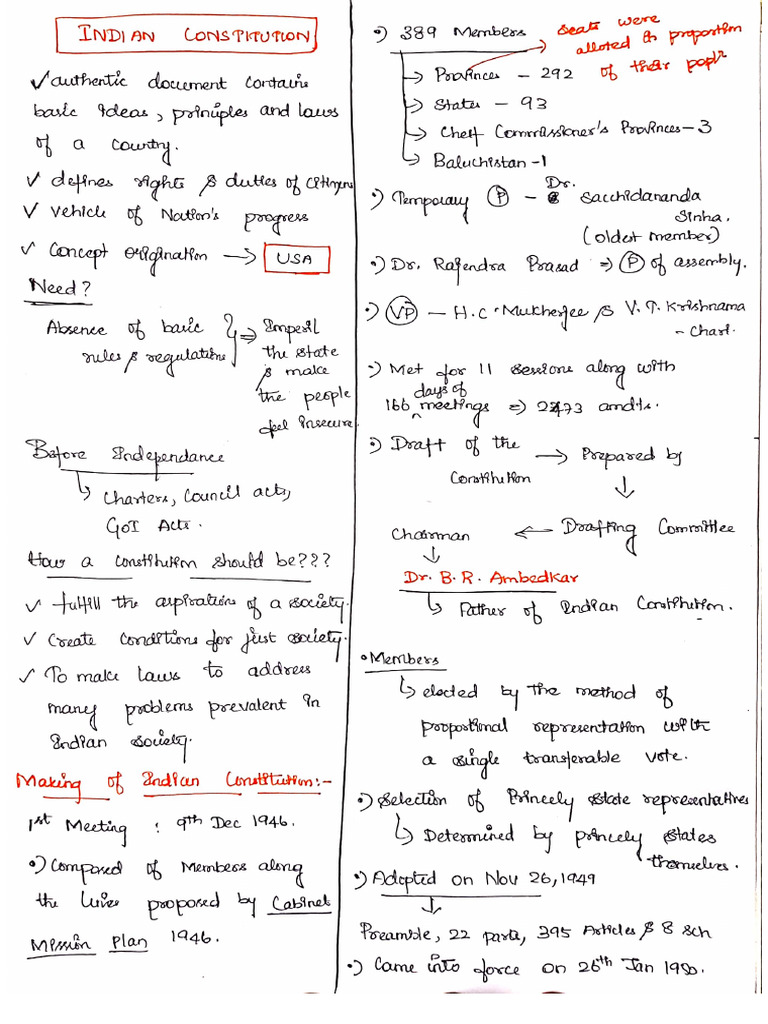 INDIAN CONSTITUTION
✓ authentic document contains
basic ideas, principles and laws
of a country.
✓ defines rights & duties of citizens
✓ vehicle of Nation's progress
✓ Concept origination → USA
Need?
Absence of basic
rules & regulations } ⇒ Imperil
the state
& make
the people
feel insecure.
Before Independance
↳ Charters, Council acts,
GoI Acts.
How a constitution should be???
✓ fulfill the aspirations of a society.
✓ Create conditions for just society.
✓ To make laws to address
many problems prevalent in
Indian society.
Making of Indian Constitution:-
1st Meeting : 9th Dec 1946.
•) Composed of Members along
the lines proposed by Cabinet
Mission Plan 1946.
•) 389 Members
→ Provinces - 292
→ seats were
alloted in proportion
of their popl
→ States - 93
→ Cheif Commissioner's Provinces - 3
Baluchistan - 1
•) Temporary (P) - Dr. Sacchidananda
Sinha.
(oldest member)
•) Dr. Rajendra Prasad ⇒ (P) of assembly.
•) (VP) - H.C. Mukherjee & V.T. Krishnama
- chari.
•) Met for 11 sessions along with
days of
166 meetings ⇒ 2473 amdts.
•) Draft of the
Constitution → Prepared by
↓
Drafting Committee
Chairman ←
↓
Dr. B. R. Ambedkar
↳ Father of Indian Constitution.
• Members
↳ elected by the method of
proportional representation with
a single transferable vote.
•) Selection of Princely state representatives
↳ Determined by princely states
themselves.
•) Adopted on Nov 26, 1949
↓
Preamble, 22 parts, 395 Articles & 8 Sch
•) Came into force on 26th Jan 1950.